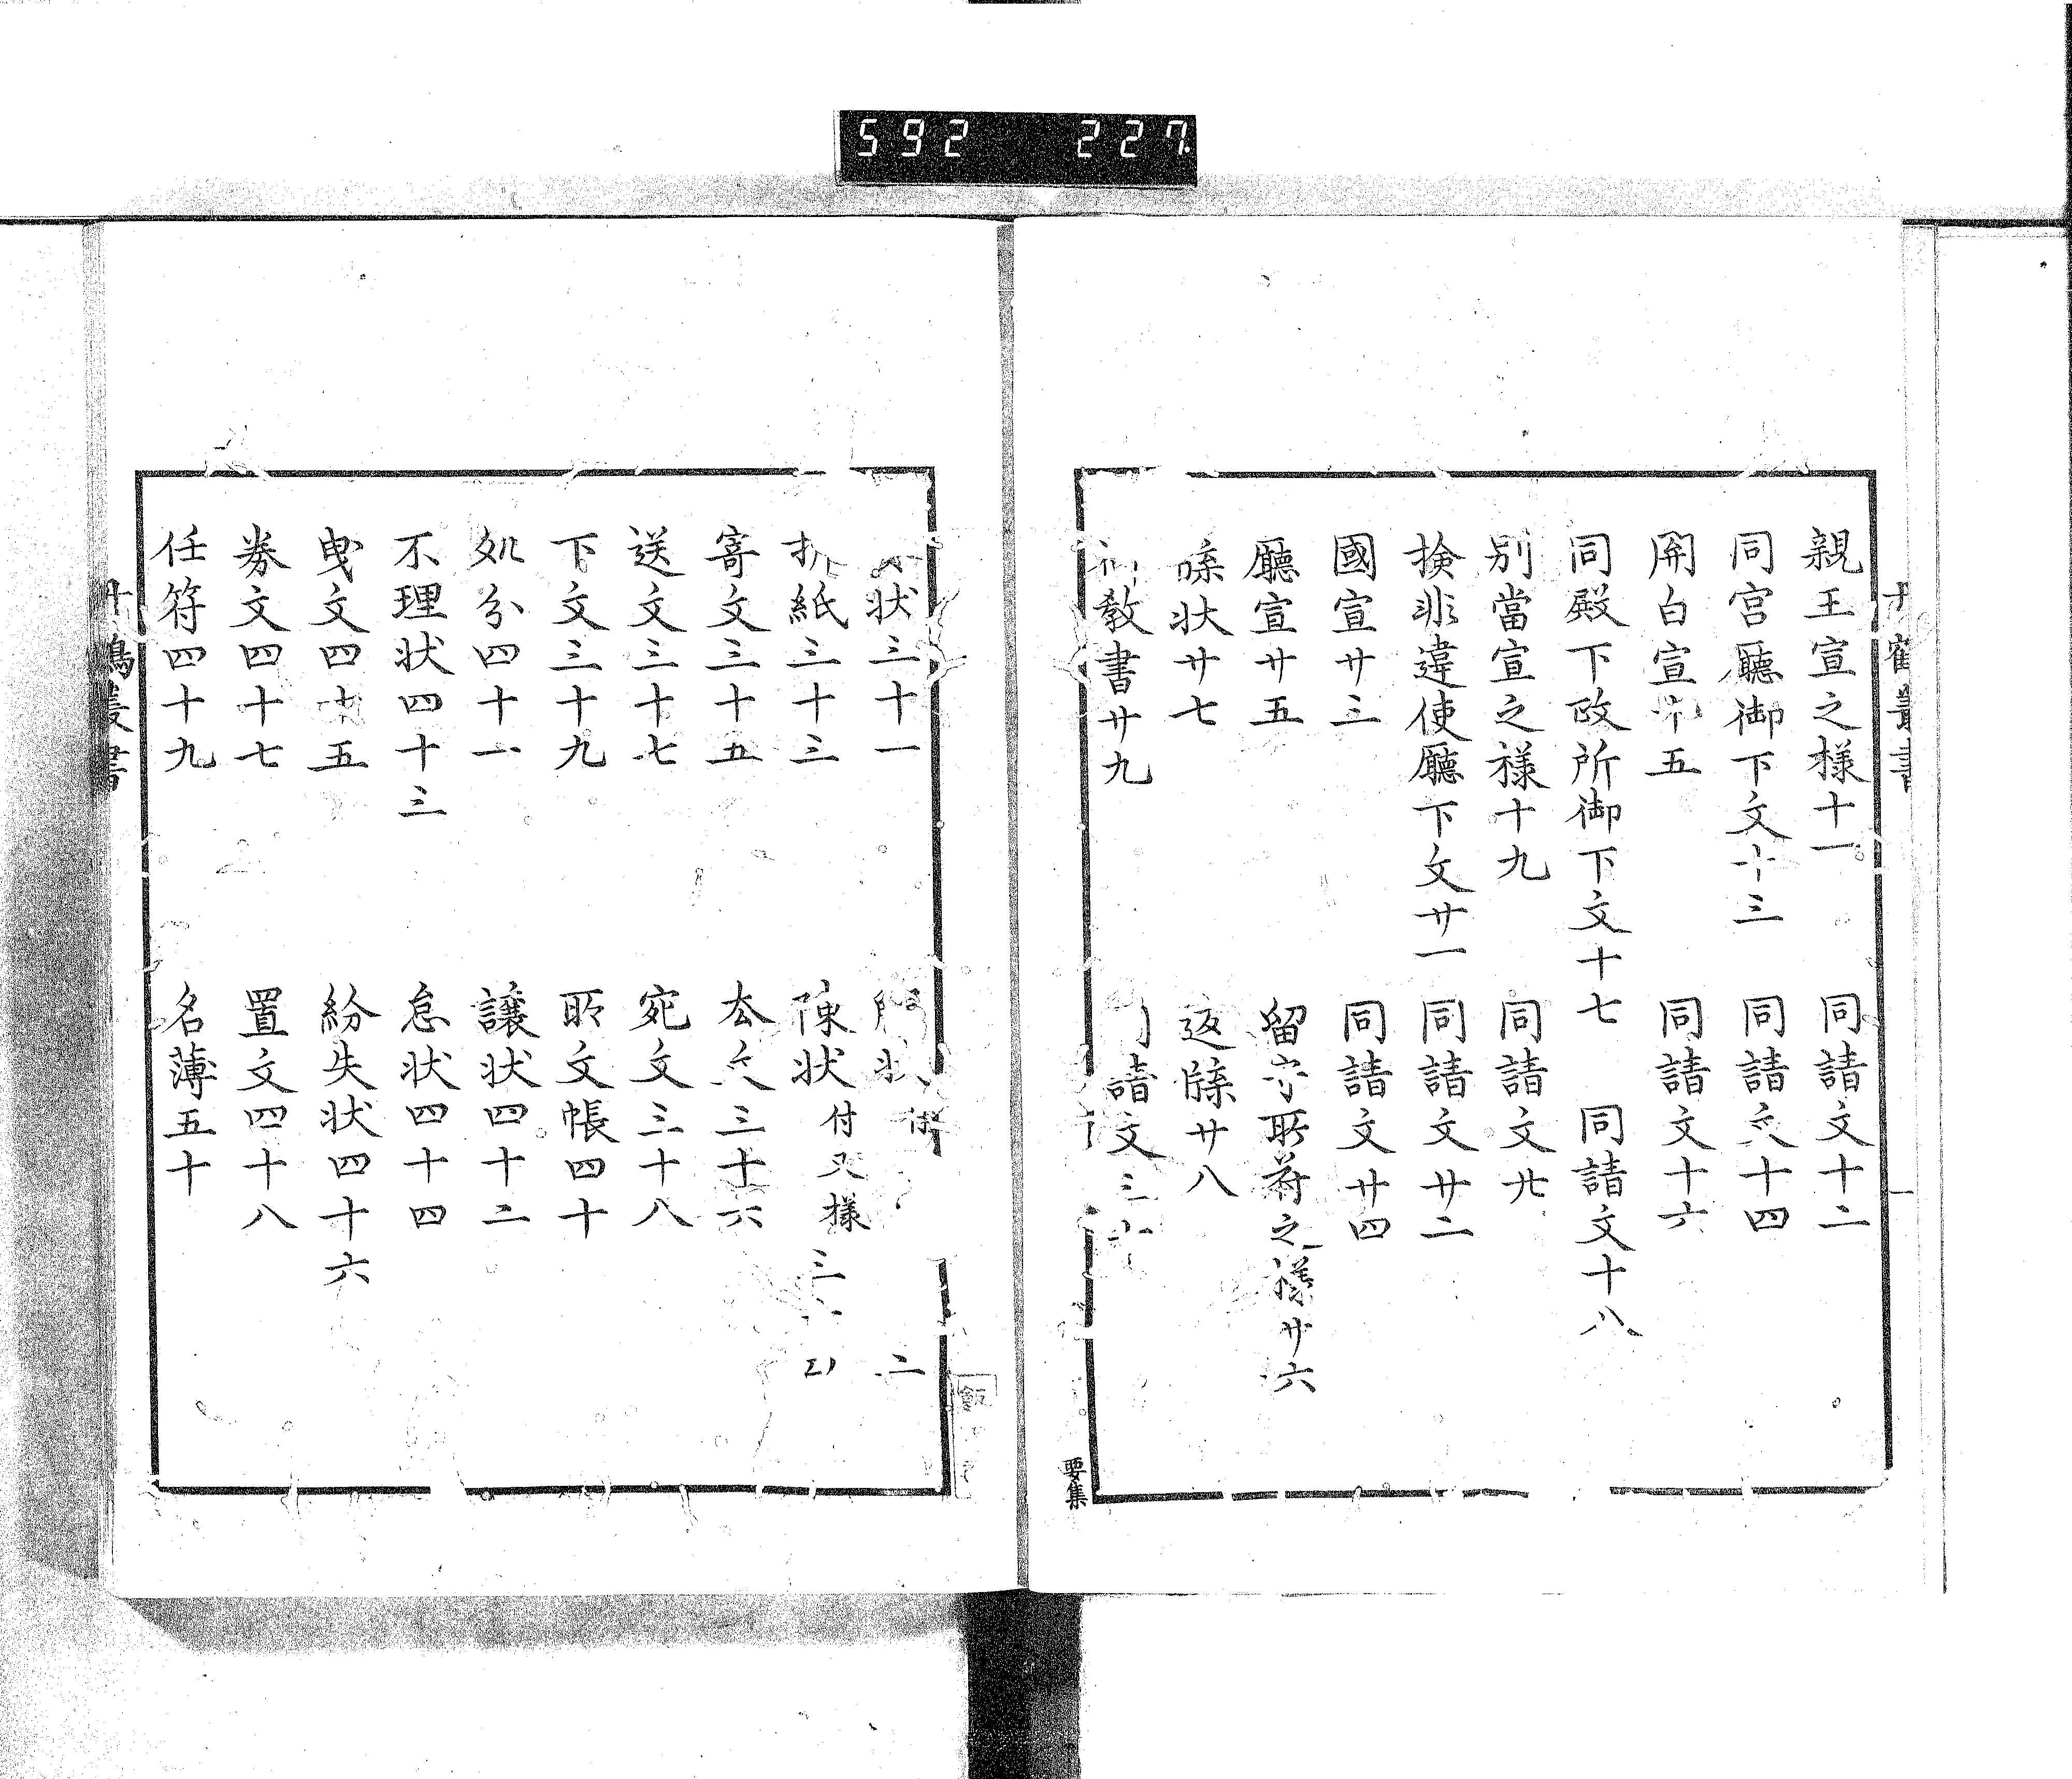 592 227
親王宣之様十一 同請文十二
同宮廳御下文十三 同請文十四
白宣 五 同請文十六
同殿下政所御下文十七 同請文十八
別當宣之様十九 同請文廿
検非違使廳下文廿一 同請文廿二
國宣廿三 同請文廿四
廳宣廿五 留守所符之様廿六
状廿七 返牒廿八
教書廿九 請文三
要集
状三十一
二
紙三十三 陳状付又様三
寄文三十五 去文三十六
送文三十七 宛文三十八
下文三十九 所文帳四十
処分四十一 譲状四十二
不理状四十三 怠状四十四
曳文四十五 紛失状四十六
券文四十七 置文四十八
任符四十九 名薄五十